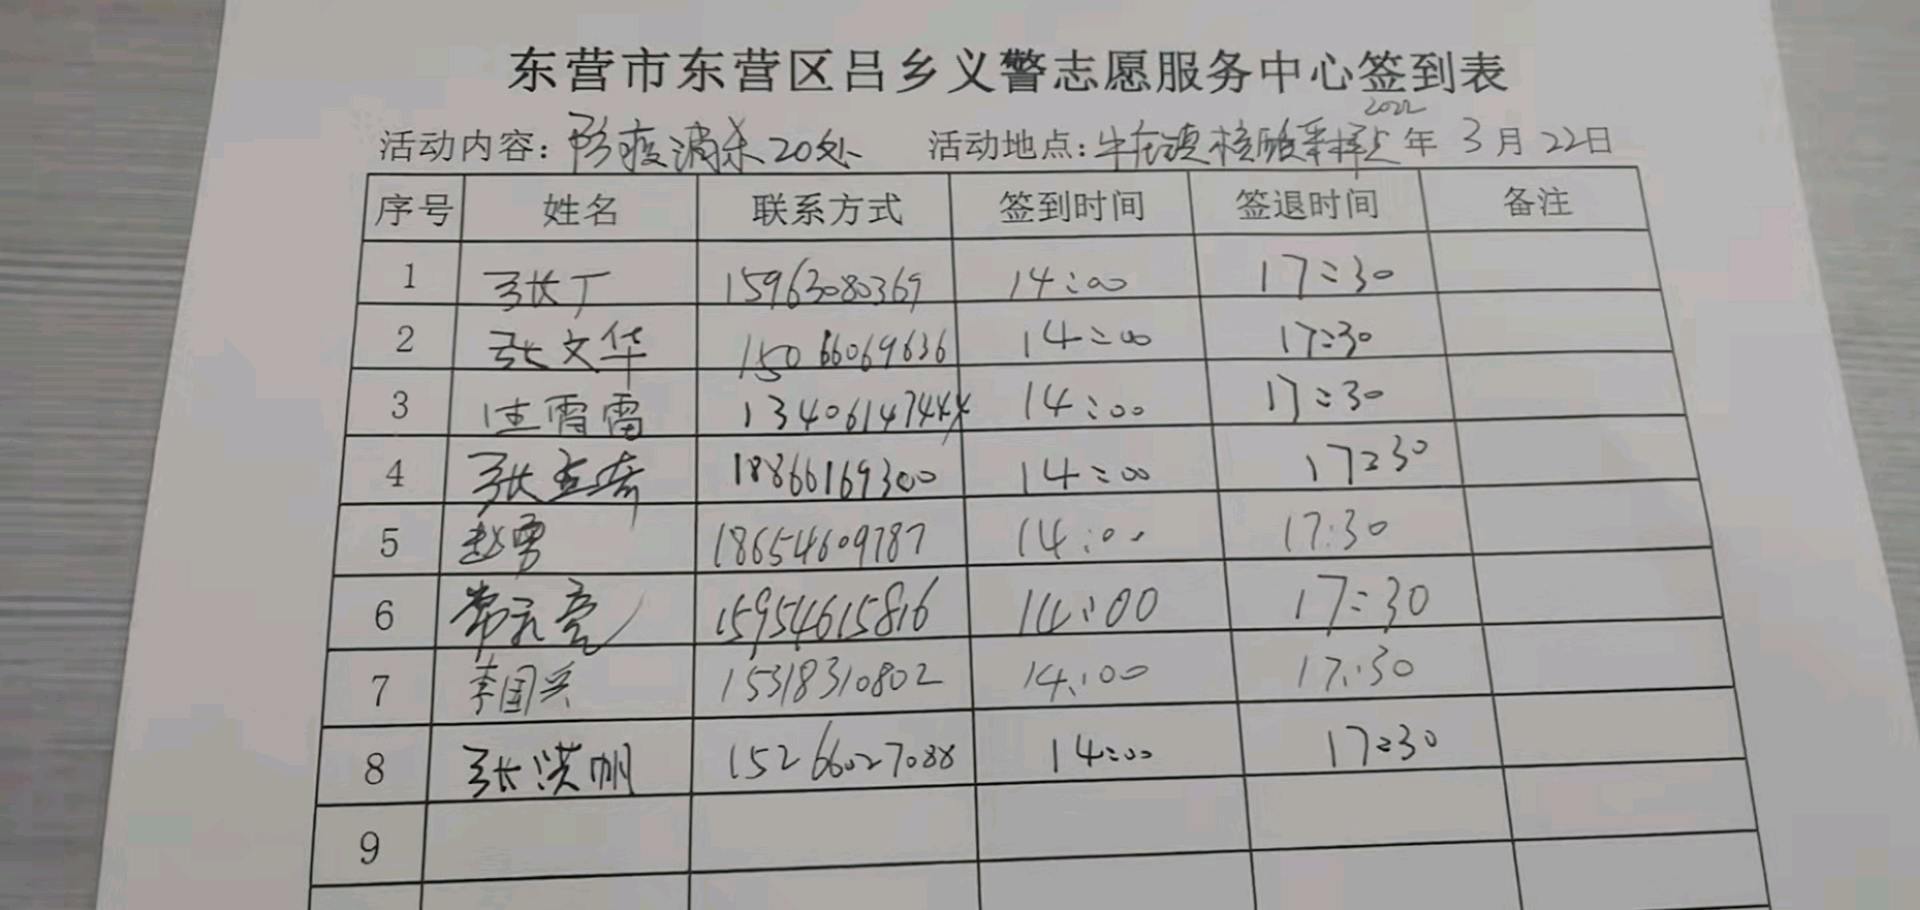 东营市东营区吕乡义警志愿服务中心签到表
2022
活动内容：防疫消杀20处 活动地点：牛庄镇核酸采样点 年 3月22日
序号 姓名 联系方式 签到时间 签退时间 备注
1 张丁 15963080369 14:00 17:30
2 张文华 15066069636 14:00 17:30
3 汪霄雷 13406147444 14:00 17:30
4 张 18866169300 14:00 17:30
5 赵勇 18654609787 14:00 17:30
6 常永亮 15954615816 14:00 17:30
7 李国兴 15318310802 14:00 17:30
8 张洪帅 15266027088 14:00 17:30
9